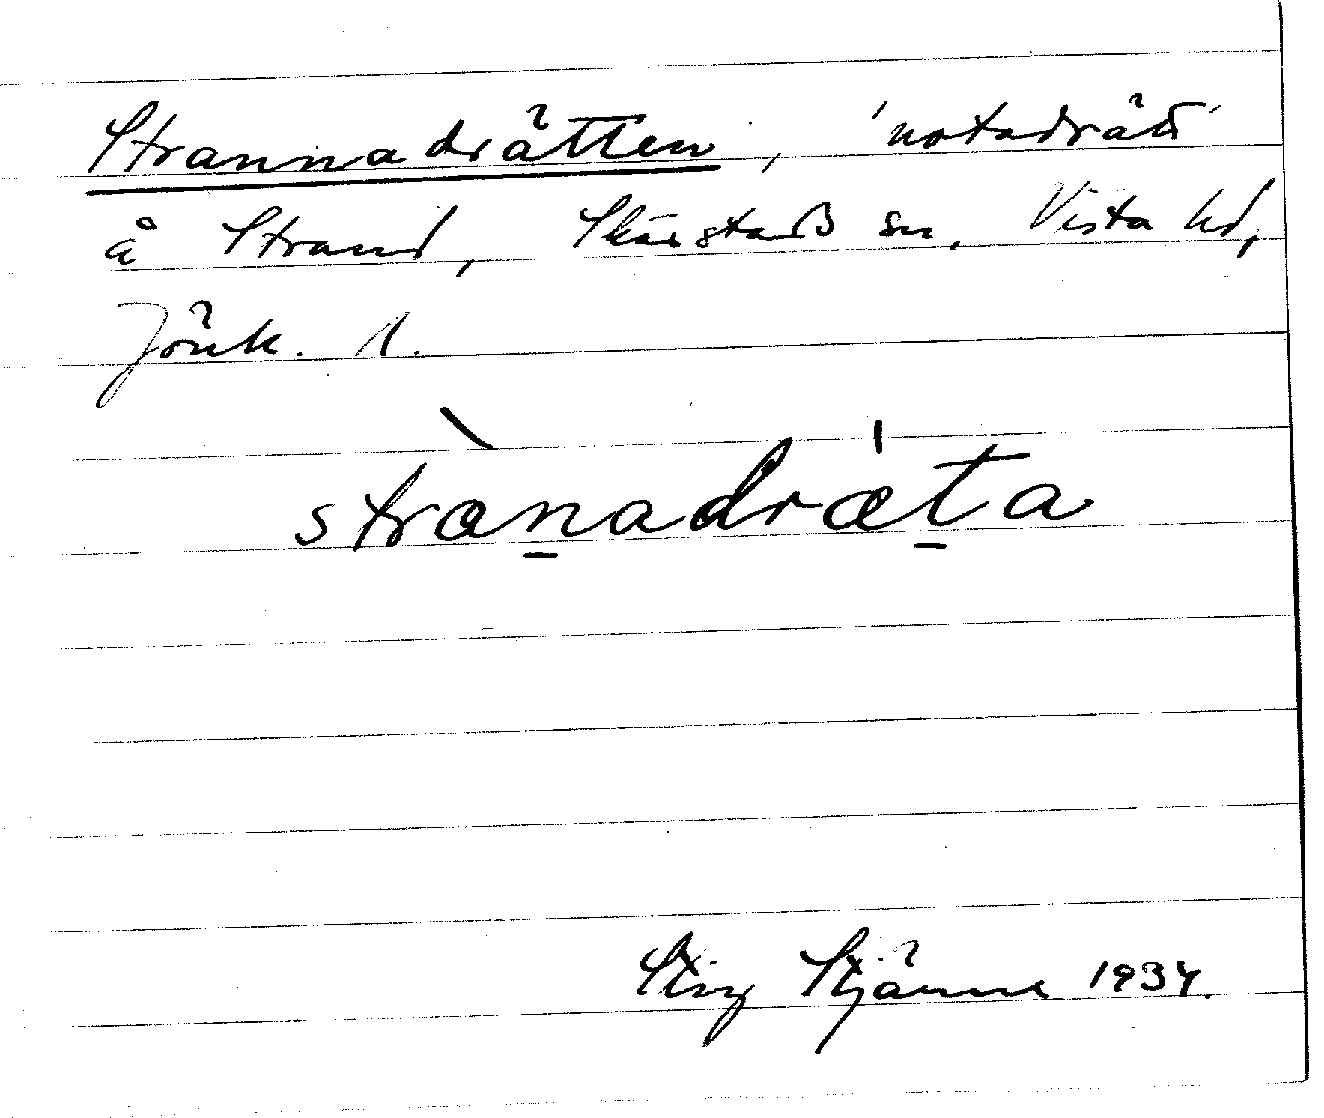 Strannadrätten, 'notadrätt'
å Strand, Skärstads sn, Vista hd,
Jönk. l.
stranadræta
Stig Stjärne 1934.